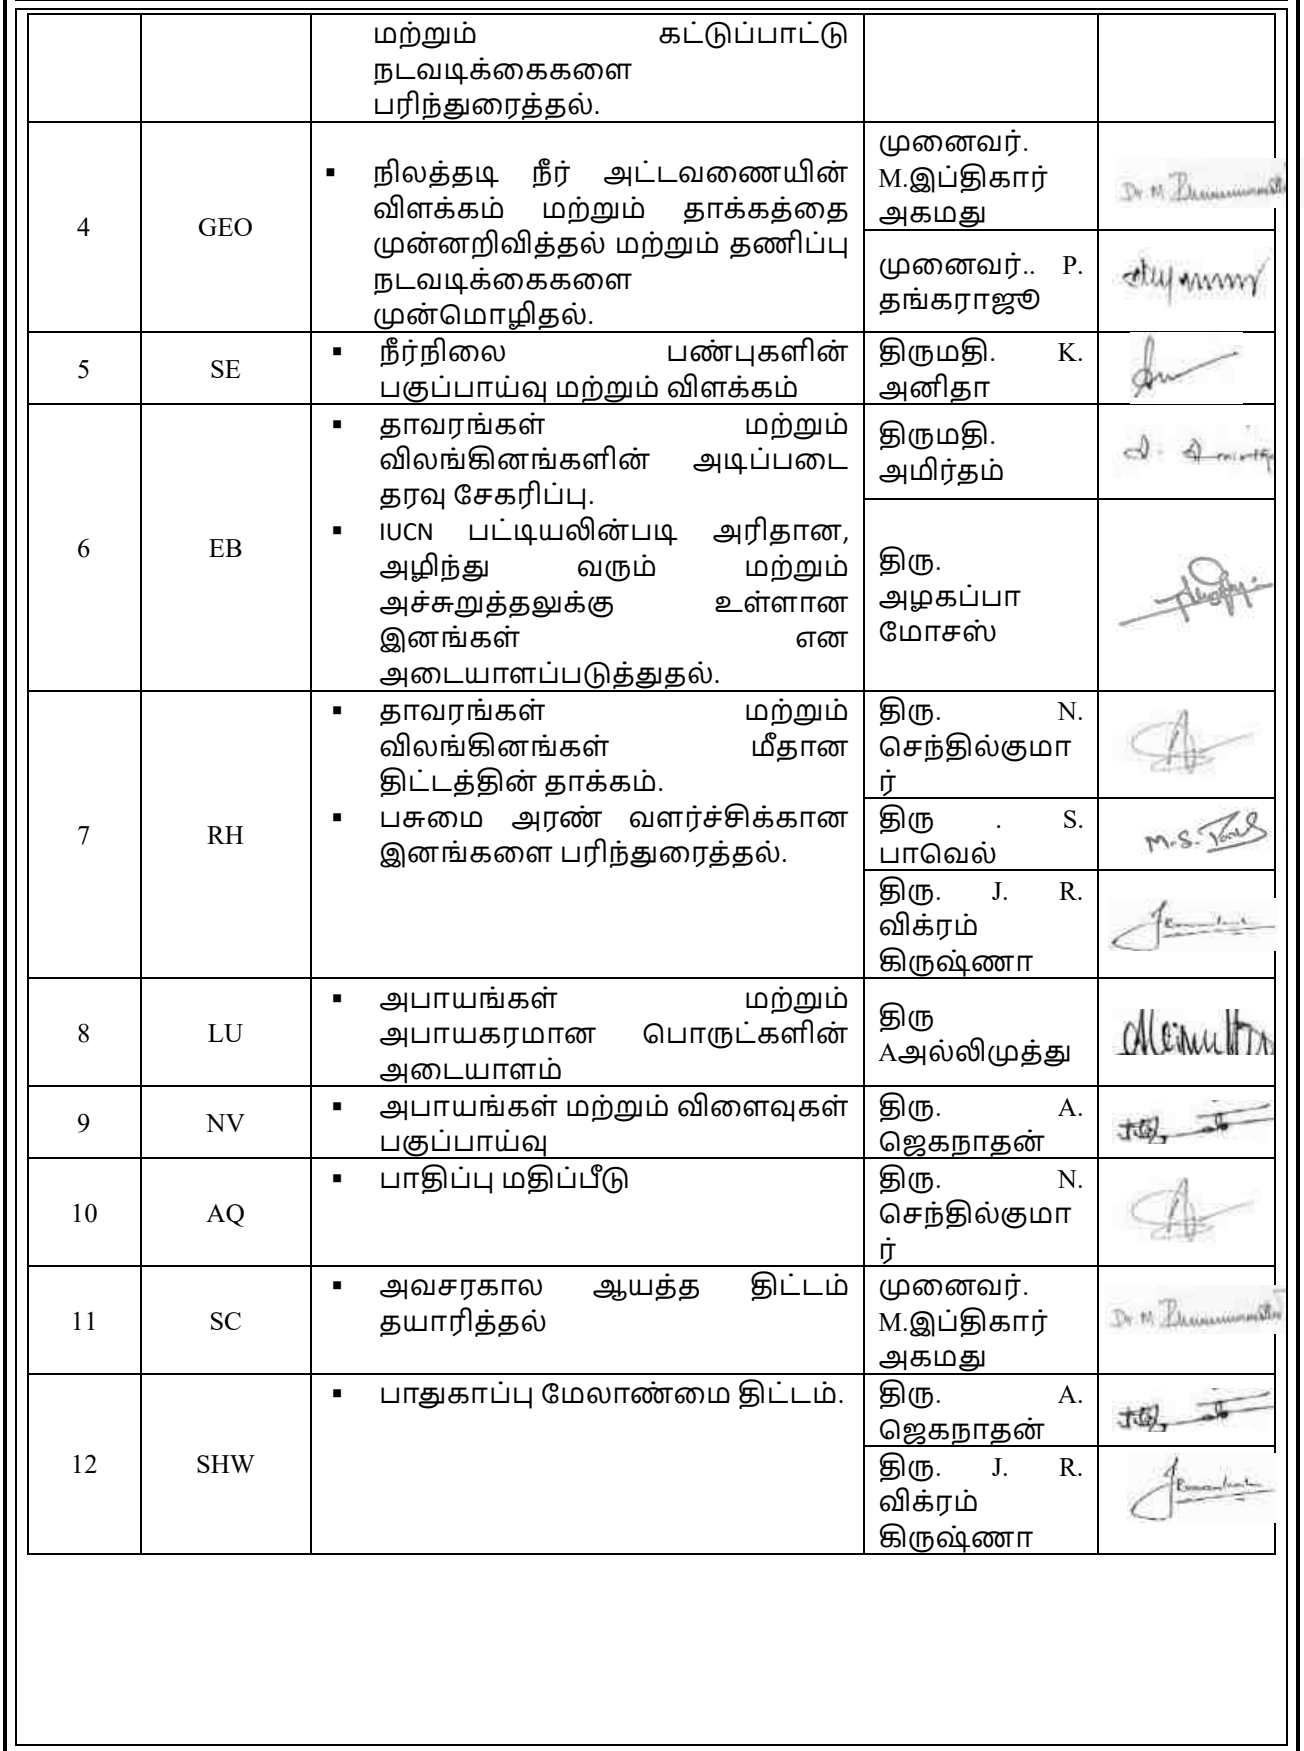 மற்றும் கட்டுப்பாட்டு
நடவடிக்கைகளை
பரிந்துரைத்தல்.
4
GEO
▪ நிலத்தடி நீர் அட்டவணையின்
விளக்கம் மற்றும் தாக்கத்தை
முன்னறிவித்தல் மற்றும் தணிப்பு
நடவடிக்கைகளை
முன்மொழிதல்.
முனைவர்.
M.இப்திகார்
அகமது
Dr. M
முனைவர்.. P.
தங்கராஜூ
5
SE
▪ நீர்நிலை பண்புகளின்
பகுப்பாய்வு மற்றும் விளக்கம்
திருமதி. K.
அனிதா
6
EB
▪ தாவரங்கள் மற்றும்
விலங்கினங்களின் அடிப்படை
தரவு சேகரிப்பு.
▪ IUCN பட்டியலின்படி அரிதான,
அழிந்து வரும் மற்றும்
அச்சுறுத்தலுக்கு உள்ளான
இனங்கள் என
அடையாளப்படுத்துதல்.
திருமதி.
அமிர்தம்
திரு.
அழகப்பா
மோசஸ்
7
RH
▪ தாவரங்கள் மற்றும்
விலங்கினங்கள் மீதான
திட்டத்தின் தாக்கம்.
▪ பசுமை அரண் வளர்ச்சிக்கான
இனங்களை பரிந்துரைத்தல்.
திரு. N.
செந்தில்குமா
ர்
திரு . S.
பாவெல்
M.S.
திரு. J. R.
விக்ரம்
கிருஷ்ணா
8
LU
▪ அபாயங்கள் மற்றும்
அபாயகரமான பொருட்களின்
அடையாளம்
திரு
Aஅல்லிமுத்து
9
NV
▪ அபாயங்கள் மற்றும் விளைவுகள்
பகுப்பாய்வு
திரு. A.
ஜெகநாதன்
10
AQ
▪ பாதிப்பு மதிப்பீடு
திரு. N.
செந்தில்குமா
ர்
11
SC
▪ அவசரகால ஆயத்த திட்டம்
தயாரித்தல்
முனைவர்.
M.இப்திகார்
அகமது
Dr. M
12
SHW
▪ பாதுகாப்பு மேலாண்மை திட்டம்.
திரு. A.
ஜெகநாதன்
திரு. J. R.
விக்ரம்
கிருஷ்ணா